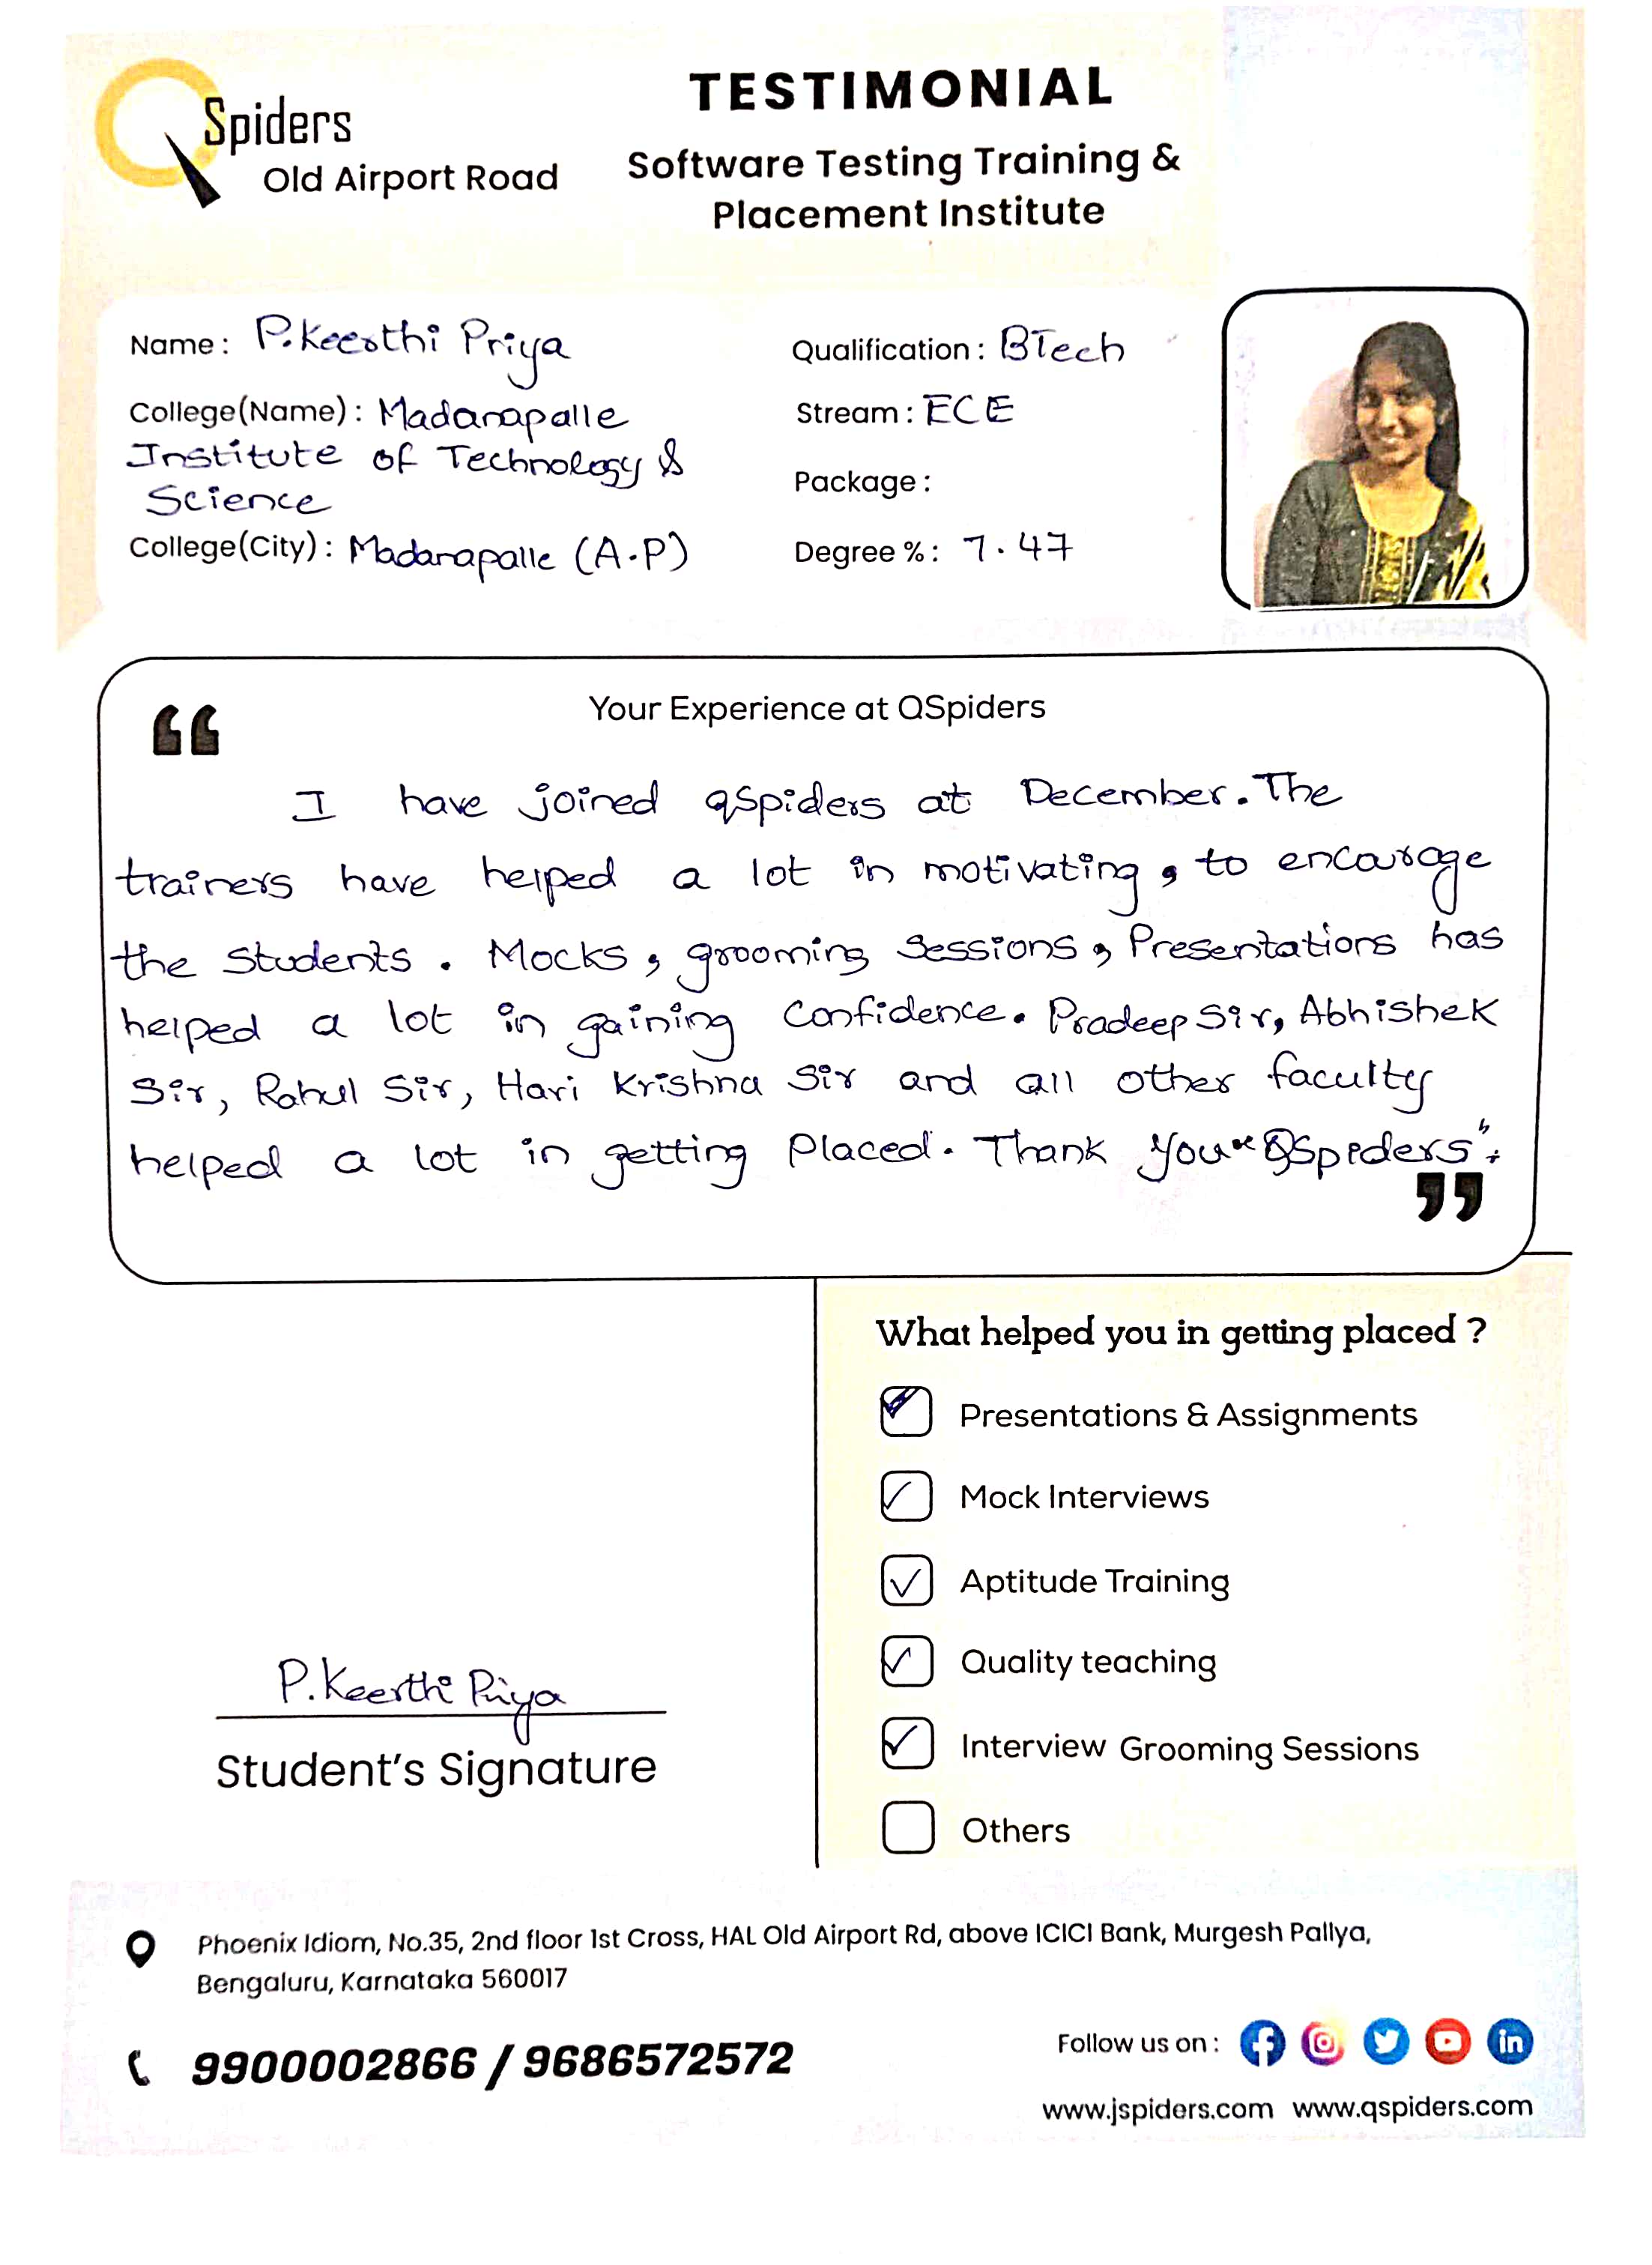 QSpiders
Old Airport Road
TESTIMONIAL
Software Testing Training &
Placement Institute
Name : P.Keerthi Priya
College(Name) : Madanapalle
Institute of Technology &
Science
College(City) : Madanapalle (A.P)
Qualification : BTech
Stream : ECE
Package :
Degree % : 7.47
Your Experience at QSpiders
“
I have joined qspiders at December. The
trainers have helped a lot in motivating, to encourage
the students. Mocks, grooming Sessions, Presentations has
helped a lot in gaining Confidence. Pradeep Sir, Abhishek
Sir, Rahul Sir, Hari Krishna Sir and all other faculty
helped a lot in getting Placed. Thank you "QSpiders".
”
What helped you in getting placed ?
Presentations & Assignments
Mock Interviews
Aptitude Training
Quality teaching
Interview Grooming Sessions
Others
P.Keerthi Priya
Student's Signature
Phoenix Idiom, No.35, 2nd floor 1st Cross, HAL Old Airport Rd, above ICICI Bank, Murgesh Pallya,
Bengaluru, Karnataka 560017
9900002866 / 9686572572
Follow us on :
www.jspiders.com www.qspiders.com